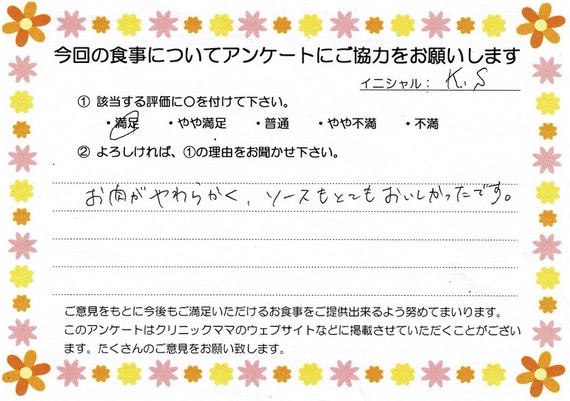 今回の食事についてアンケートにご協力をお願いします
イニシャル： K.S
① 該当する評価に○を付けて下さい。
・満足 ・やや満足 ・普通 ・やや不満 ・不満
② よろしければ、①の理由をお聞かせ下さい。
お肉がやわらかく、ソースもとてもおいしかったです。
ご意見をもとに今後もご満足いただけるお食事をご提供出来るよう努めてまいります。
このアンケートはクリニックママのウェブサイトなどに掲載させていただくことがござい
ます。たくさんのご意見をお願い致します。